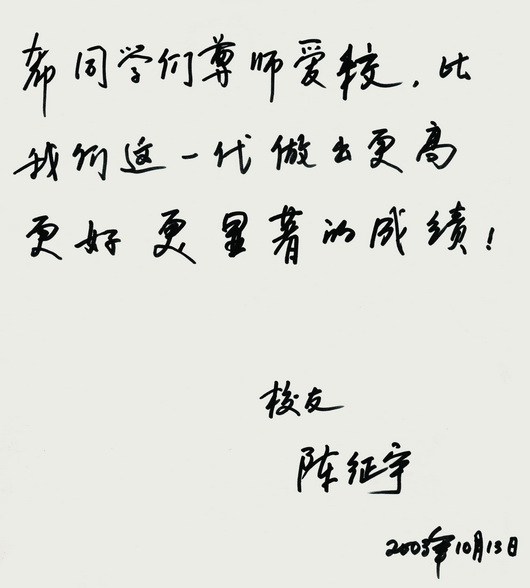 希同学们尊师爱校，比
我们这一代做出更高
更好更显著的成绩！
校友
陈征宇
2003年10月13日